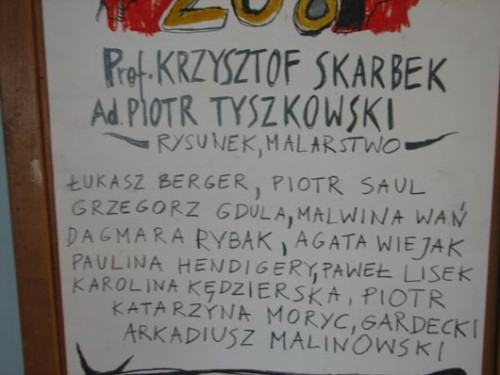 208
Prof. KRZYSZTOF SKARBEK
Ad. PIOTR TYSZKOWSKI
RYSUNEK, MALARSTWO
ŁUKASZ BERGER, PIOTR SAUL
GRZEGORZ GDULA, MALWINA WAŃ
DAGMARA RYBAK, AGATA WIEJAK
PAULINA HENDIGERY, PAWEŁ LISEK
KAROLINA KĘDZIERSKA, PIOTR
KATARZYNA MORYC, GARDECKI
ARKADIUSZ MALINOWSKI